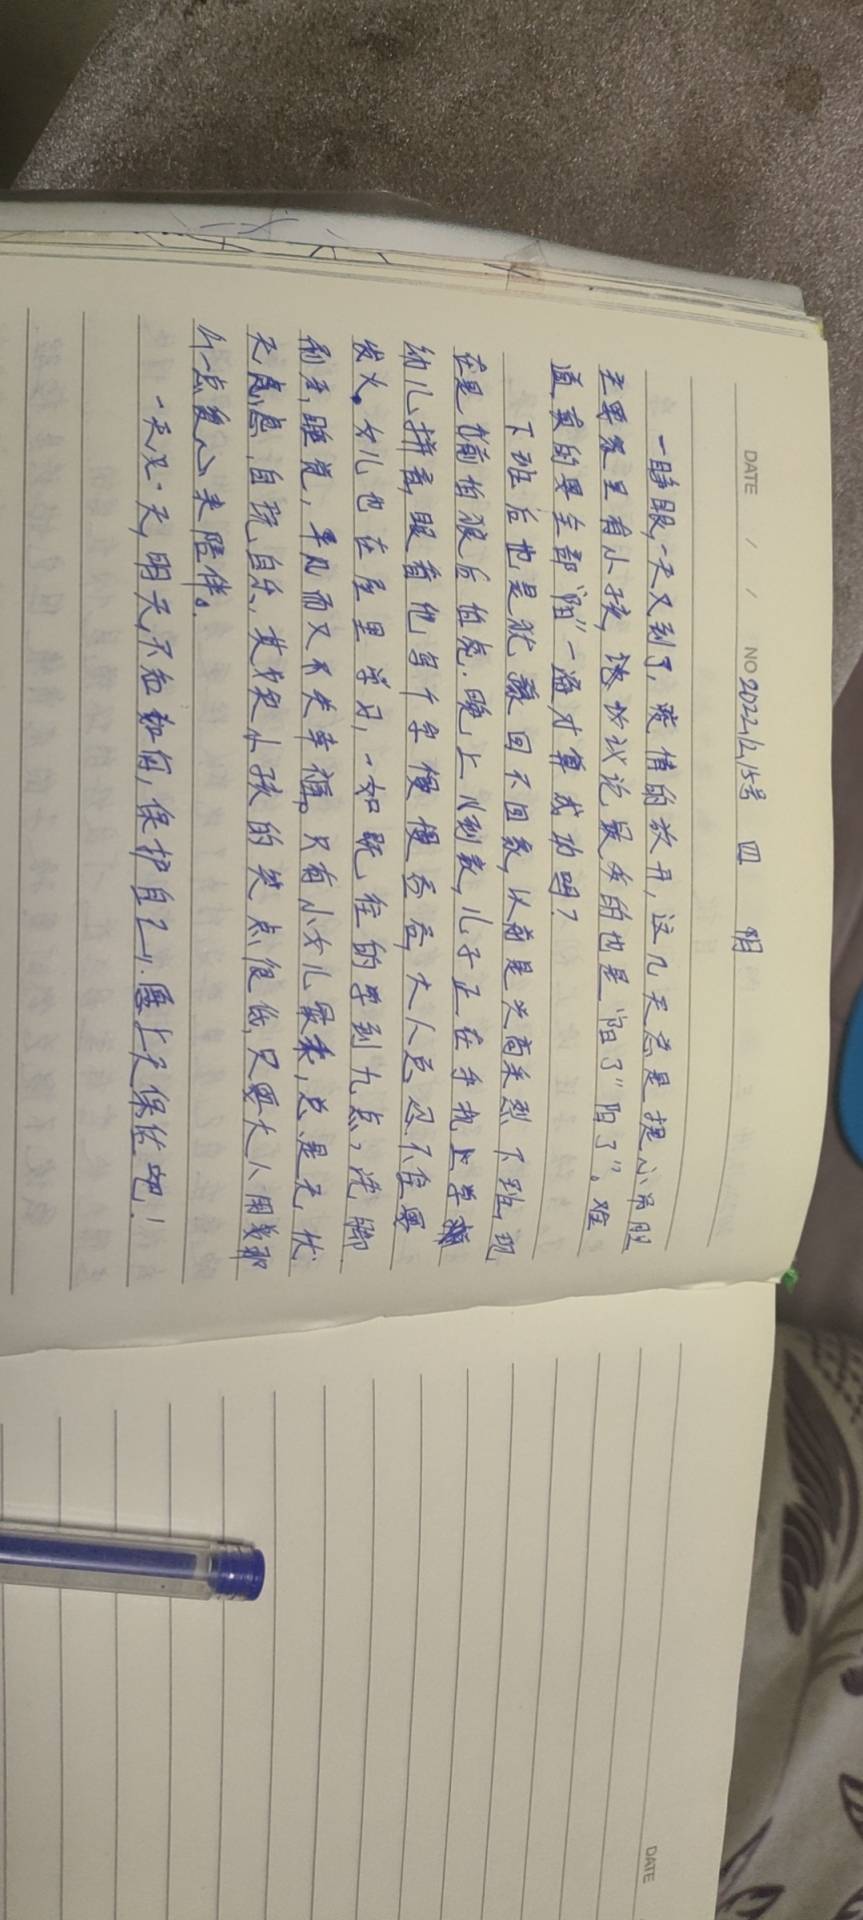 DATE / / NO 2022/12/15号 四 阴
一睁眼,一天又到了,疫情的放开,这几天总是提心吊胆
主要家里有小孩,谈妙议论最多的也是"阳了""阳了"。难
道真的要全部"阳"一遍才算成功吗?
下班后也是犹豫回不回家,以前是兴高采烈下班,现
在是前怕狼后怕虎.晚上八到家,儿子正在手机上学
幼儿拼音,眼看他每个字慢慢吞吞,大人已忍不住要
发火。女儿也在屋里学习,一如既往的学到九点,洗脚
刷牙,睡觉,平凡而又不失幸福。只有小女儿最乖,总是无忧
无虑,自玩,自乐,其实小孩的笑点很低,只要大人用我那
么一点爱心来陪伴。
一天又一天,明天,不知如何,保护自己,愿上天保佑吧!
DATE